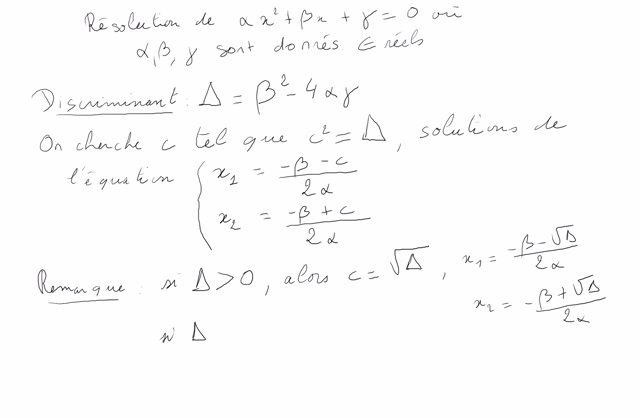 Résolution de αx² + βx + γ = 0 où
α, β, γ sont donnés. ∈ réels
Discriminant : Δ = β² - 4αγ
On cherche c tel que c² = Δ, solutions de
l'équation { x₁ = (-β - c)/(2α)
x₂ = (-β + c)/(2α)
Remarque : si Δ > 0, alors c = √Δ, x₁ = (-β - √Δ)/(2α)
x₂ = (-β + √Δ)/(2α)
si Δ